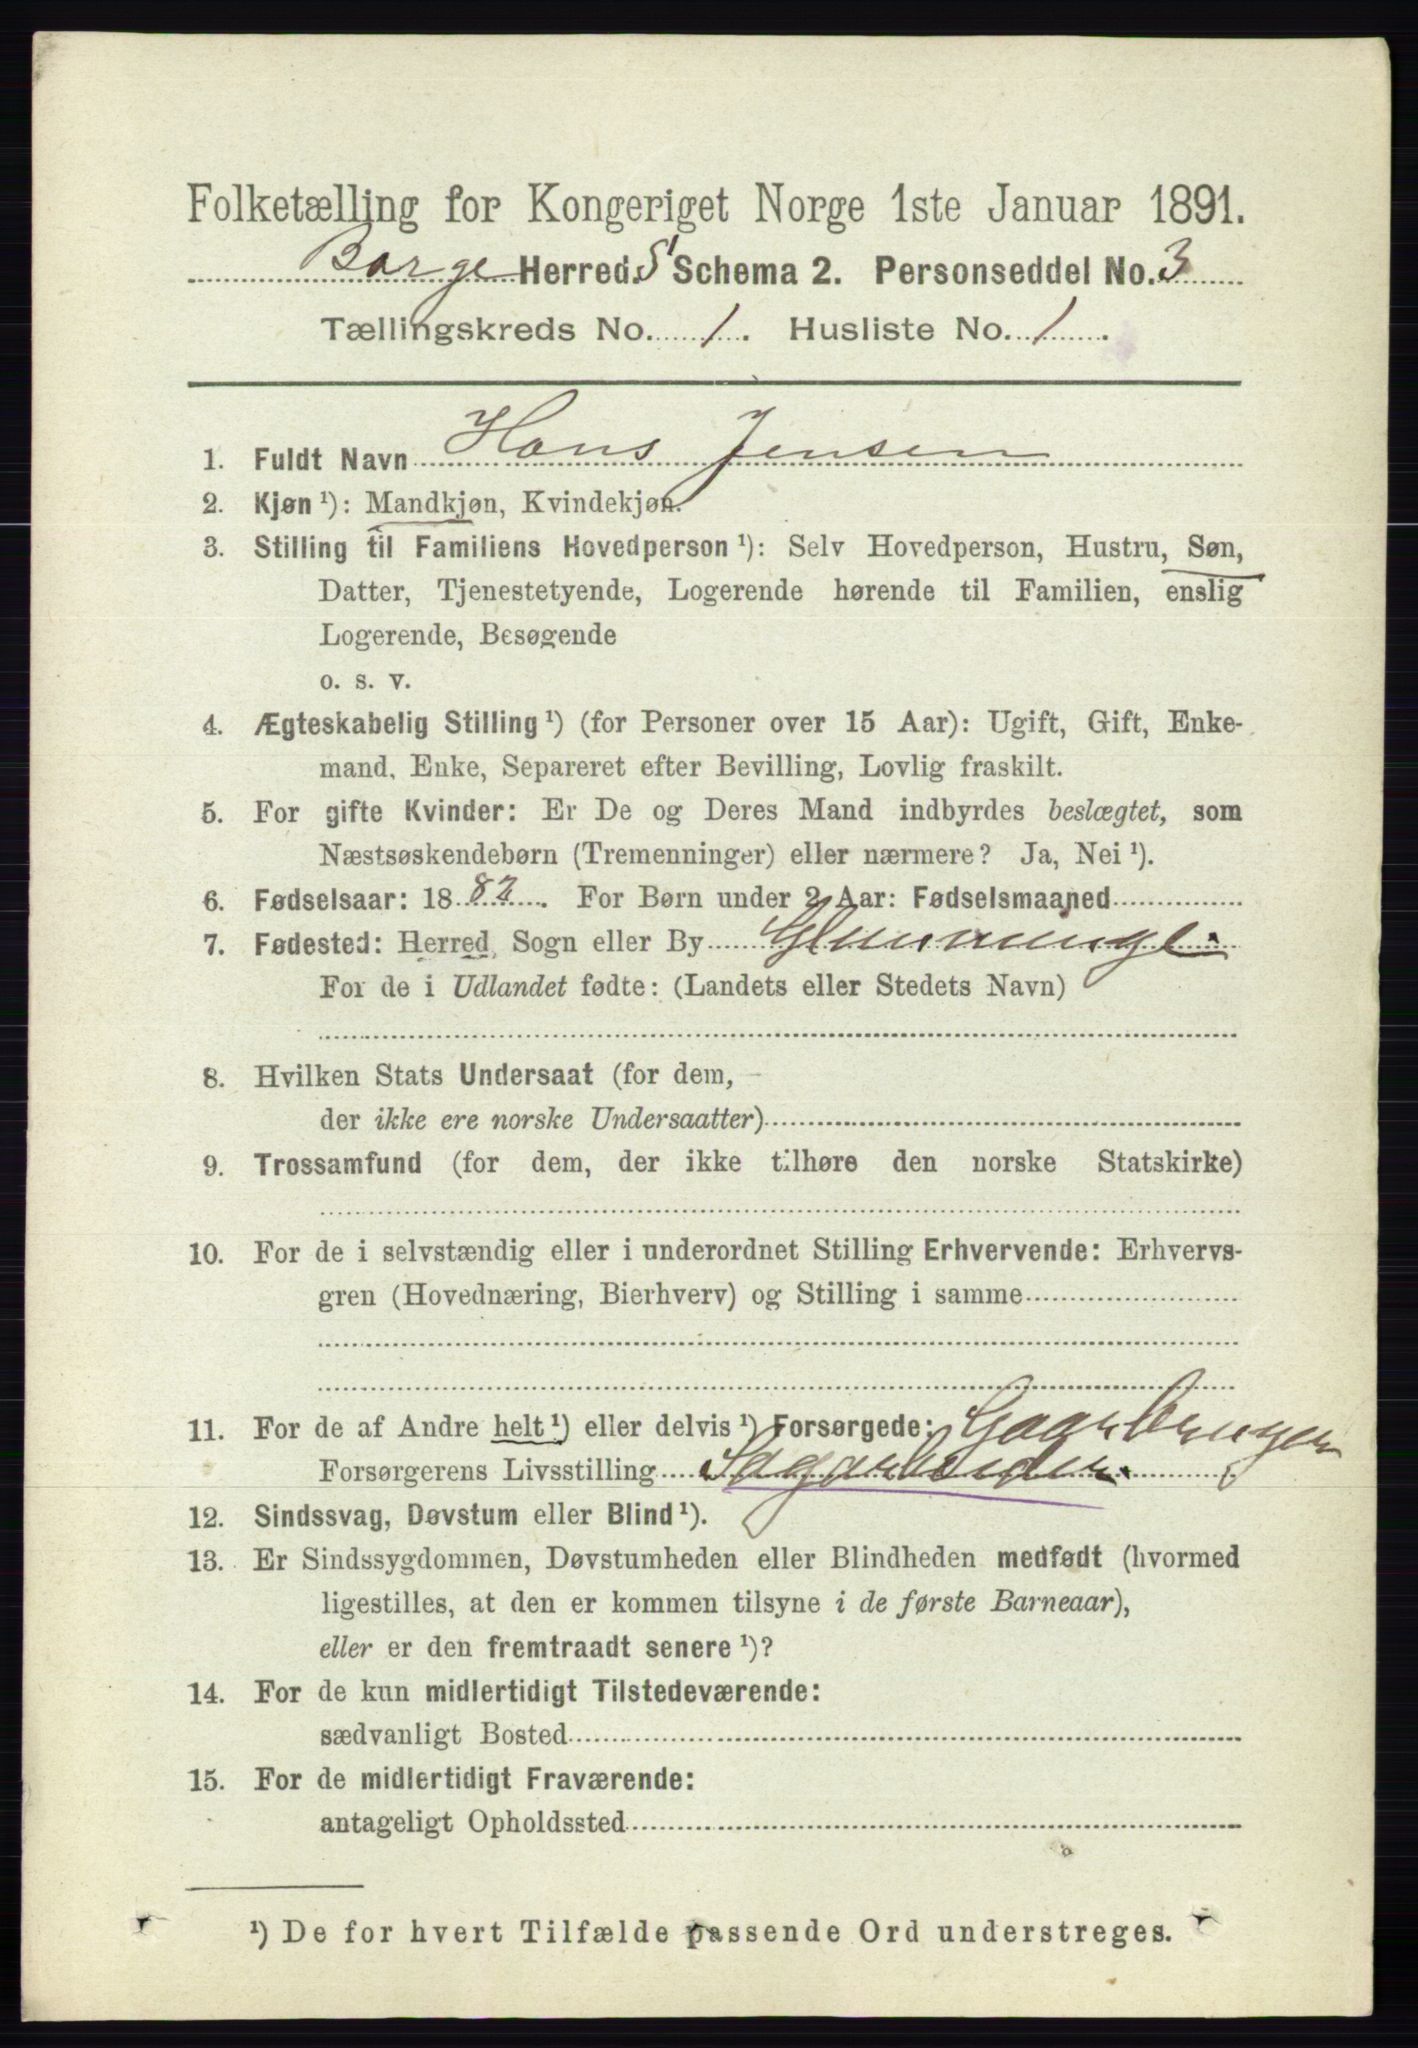 Folketælling for Kongeriget Norge 1ste Januar 1891.
Borge Herred. S Schema 2. Personseddel No. 3
Tællingskreds No. 1. Husliste No. 1.
1. Fuldt Navn Hans Jensen
2. Kjøn ¹): Mandkjøn, Kvindekjøn.
3. Stilling til Familiens Hovedperson ¹): Selv Hovedperson, Hustru, Søn,
Datter, Tjenestetyende, Logerende hørende til Familien, enslig
Logerende, Besøgende
o. s. v.
4. Ægteskabelig Stilling ¹) (for Personer over 15 Aar): Ugift, Gift, Enke-
mand, Enke, Separeret efter Bevilling, Lovlig fraskilt.
5. For gifte Kvinder: Er De og Deres Mand indbyrdes beslægtet, som
Næstsøskendebørn (Tremenninger) eller nærmere? Ja, Nei ¹).
6. Fødselsaar: 1882. For Børn under 2 Aar: Fødselsmaaned
7. Fødested: Herred, Sogn eller By Glemminge.
For de i Udlandet fødte: (Landets eller Stedets Navn)
8. Hvilken Stats Undersaat (for dem,
der ikke ere norske Undersaatter)
9. Trossamfund (for dem, der ikke tilhøre den norske Statskirke)
10. For de i selvstændig eller i underordnet Stilling Erhvervende: Erhvervs-
gren (Hovednæring, Bierhverv) og Stilling i samme
11. For de af Andre helt ¹) eller delvis ¹) Forsørgede: Gaarbruger
Forsørgerens Livsstilling Sagarbeider.
12. Sindssvag, Døvstum eller Blind ¹).
13. Er Sindssygdommen, Døvstumheden eller Blindheden medfødt (hvormed
ligestilles, at den er kommen tilsyne i de første Barneaar),
eller er den fremtraadt senere ¹)?
14. For de kun midlertidigt Tilstedeværende:
sædvanligt Bosted
15. For de midlertidigt Fraværende:
antageligt Opholdssted
¹) De for hvert Tilfælde passende Ord understreges.